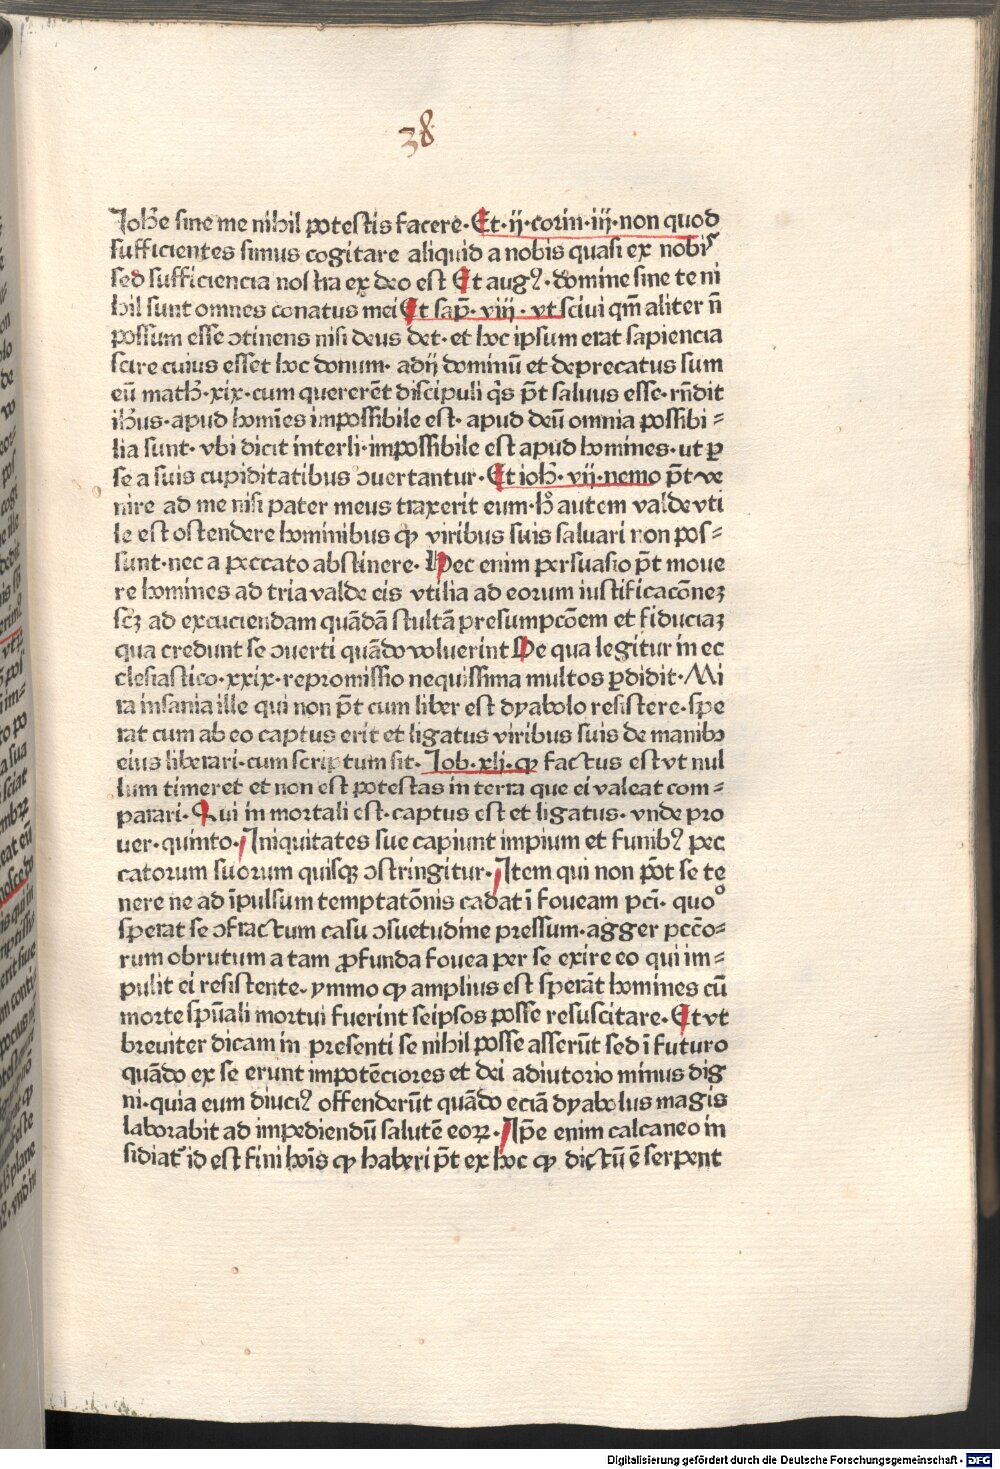 38
Joħe sine me nihil potestis facere· Et·ij·corin·iij·non quod
sufficientes simus cogitare aliquid a nobis quasi ex nobis
sed sufficiencia nostra ex deo est Et augꝰ· domine sine te ni
hil sunt omnes conatus mei Et sap̄· viij · vt sciui qm̄ aliter n̄
possum esse ↄtinens nisi deus det· et hoc ipsum erat sapiencia
scire cuius esset hoc donum· adij dominū et deprecatus sum
eū matħ·xix·cum quererēt discipuli q̄s p̄t saluus esse·rn̄dit
iħus·apud homīes impossibile est· apud deū omnia possibi⸗
lia sunt· vbi dicit interli·impossibile est apud homines·ut ꝑ
se a suis cupiditatibus ↄuertantur·Et ioħ· vij·nemo p̄t ve
nire ad me nisi pater meus traxerit eum·h̄ autem valde vti
le est ostendere hominibus ꝙ viribus suis saluari non pos⸗
sunt·nec a peccato abstinere· Hec enim persuasio p̄t moue
re homines ad tria valde eis vtilia ad eorum iustificacōneꝫ
scꝫ ad excuciendam quādā stultā presumpcōem et fiduciaꝫ
qua credunt se ↄuerti quādo voluerint De qua legitur in ec
clesiastico·xxix·repromissio nequissima multos ꝑdidit·Mi
ra insania ille qui non p̄t cum liber est dyabolo resistere·spe
rat cum ab eo captus erit et ligatus viribus suis de manibꝫ
eius liberari·cum scriptum sit· Job·xli·ꝙ factus est vt nul
lum timeret et non est potestas in terra que ei valeat com⸗
parari· Qui in mortali est·captus est et ligatus· vnde pro
uer·quinto·Iniquitates sue capiunt impium et funibꝰ pec
catorum suorum quisqꝫ ↄstringitur·Item qui non p̄ot se te
nere ne ad īpulsum temptatōnis cadat ī foueam pc̄i· quo°
sperat se ↄfractum casu ↄsuetudine pressum·agger pcc̄o⸗
rum obrutum a tam ꝓfunda fouea per se exire eo qui im⸗
pulit ei resistente·ymmo ꝙ amplius est sperāt homines cū
morte spūali mortui fuerint seipsos posse resuscitare·Et vt
breuiter dicam in presenti se nihil posse asserūt sed ī futuro
quādo ex se erunt impotēciores et dei adiutorio minus dig
ni·quia eum diuciꝰ offenderūt quādo eciā dyabolus magis
laborabit ad impediendū salutē eoꝝ·Ip̄e enim calcaneo in
sidiat᷑ id est fini hoīs ꝙ haberi p̄t ex hoc ꝙ dictū ē serpent
Digitalisierung gefördert durch die Deutsche Forschungsgemeinschaft - DFG